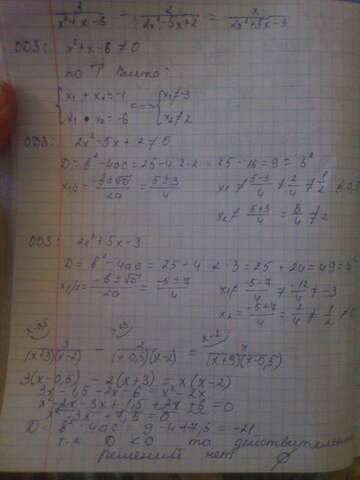 3/(x²+x-6) - 2/(2x²-5x+2) = x/(2x²+5x-3)
ОДЗ: x²+x-6≠0
по Т Виета:
{x₁+x₂=-1 <=> {x₁≠-3
{x₁•x₂=-6 {x₂≠2
ОДЗ: 2x²-5x+2≠0
D=b²-4ac=25-4·2·2=25-16=9=3²
x₁/₂=(-b±√D)/2a=(5±3)/4 x₁≠(5-3)/4≠2/4≠1/2≠0,5
x₂≠(5+3)/4=8/4≠2
ОДЗ: 2x²+5x-3
D=b²-4ac=25-4·2·3=25+24=49=7²
x₁/₂=(-b±√D)/2a=(-5±7)/4 x₁≠(-5-7)/4≠-12/4≠-3
x₂=(-5+7)/4=2/4≠1/2≠
x-0,5 x+3 x-2
3/((x+3)(x-2)) - 2/((x-0,5)(x-2)) = x/((x+3)(x-0,5))
3(x-0,5)-2(x+3)=x(x-2)
3x-1,5-2x-6=x²-2x
x²-2x-3x+1,5+2x+6=0
x²-3x+7,5=0
D=b²-4ac=9-4·7,5=-21
т.к. D<0 то действительных
решений нет ∅